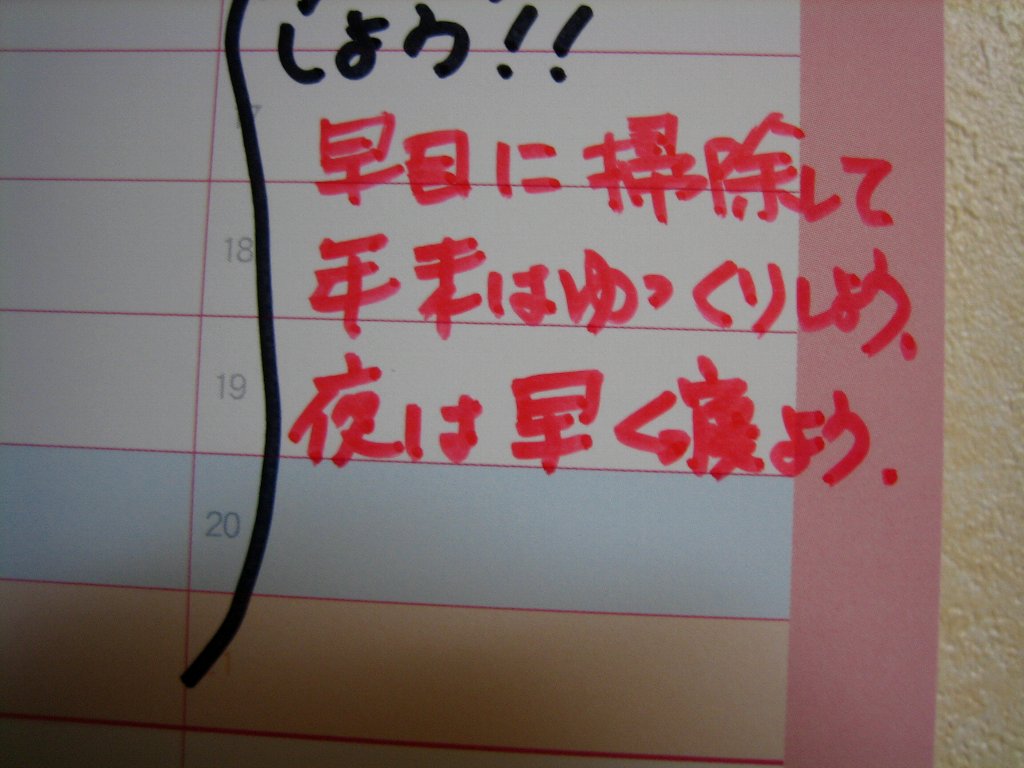 しよう!!
17
早目に掃除して
18
年末はゆっくりしよう.
19
夜は早く寝よう.
20